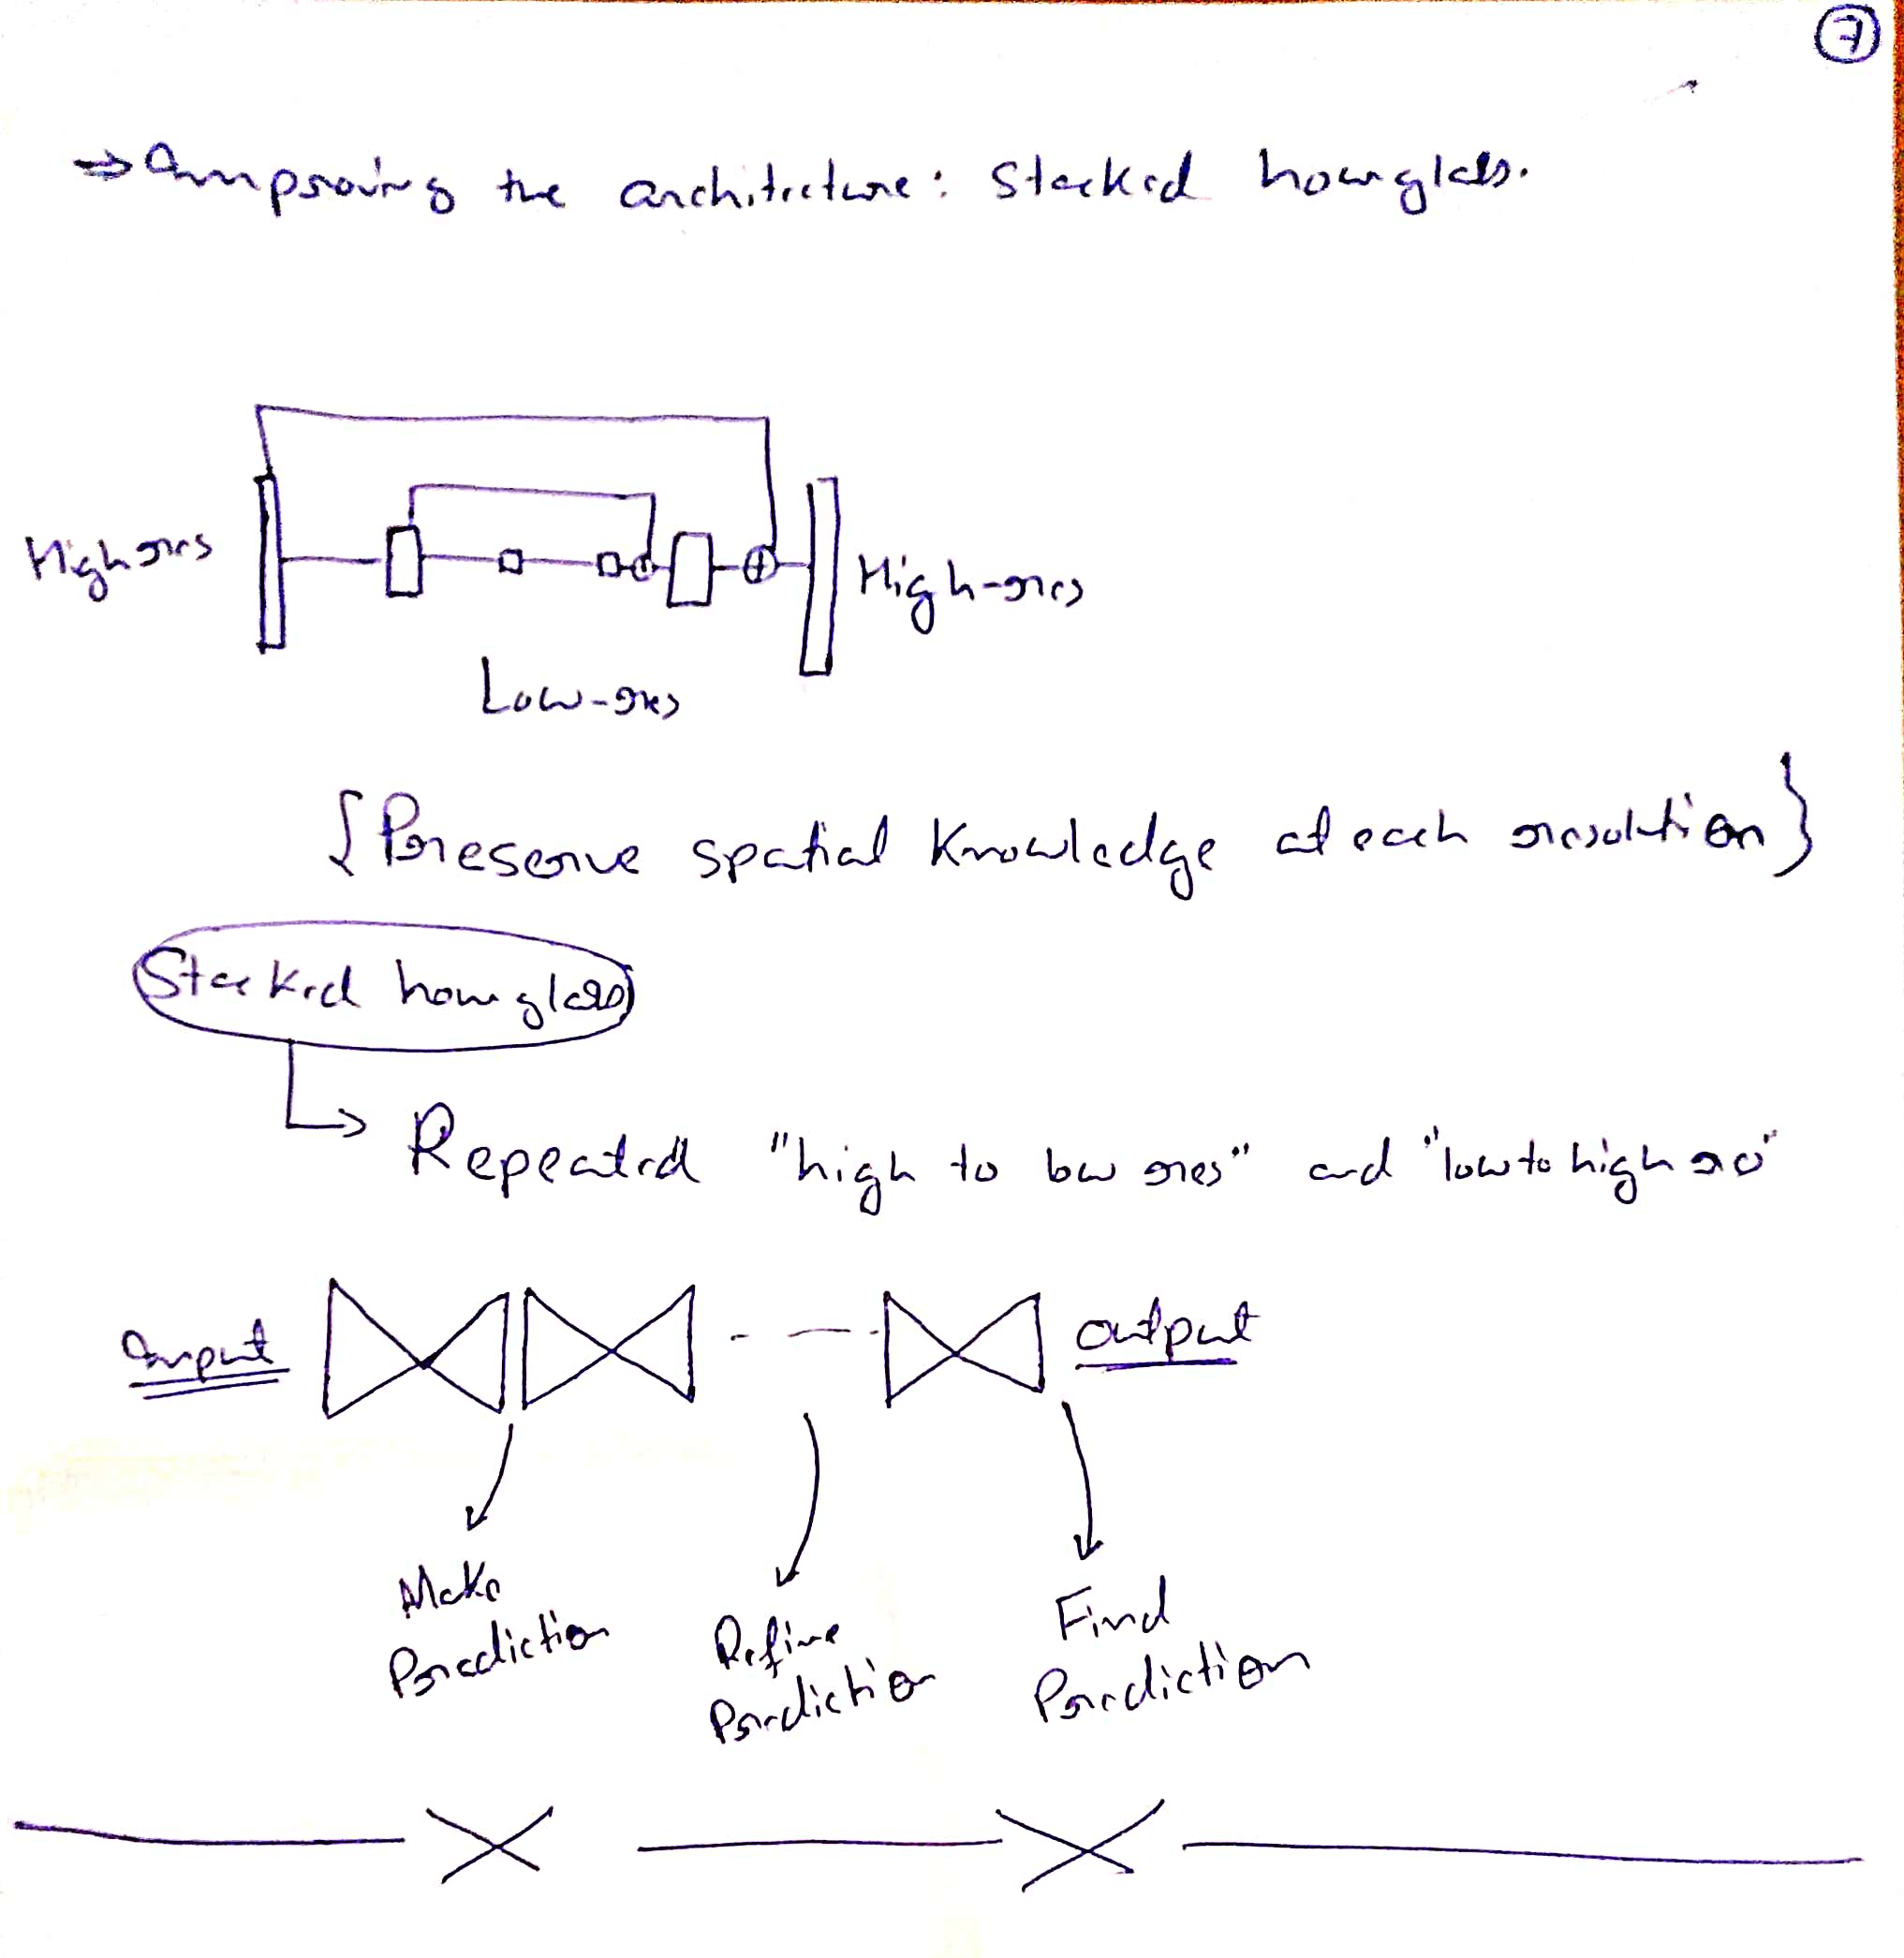 7
⇒ Improving the architecture: Stacked hourglass.
High res
High-res
Low-res
{Preserve spatial knowledge at each resolution}
Stacked hourglass
Repeated "high to low res" and "low to high res"
Input
Output
Make
Prediction
Refine
Prediction
Final
Prediction